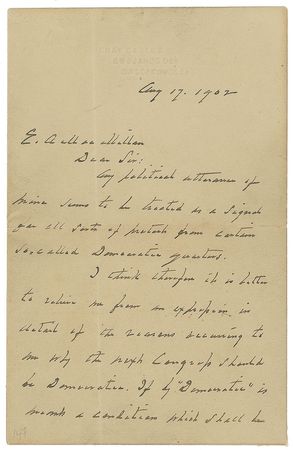 Aug 17. 1902
E. A.
Dear Sir:
Any political utterance of
mine seems to be treated as a signal
for all sorts of from certain
so-called Democratic quarters.
I think therefore it is better
to relieve me from an expression in
detail of the reasons occurring to
me why the next Congress should
be Democratic. If by "Democratic" is
meant a condition which shall be